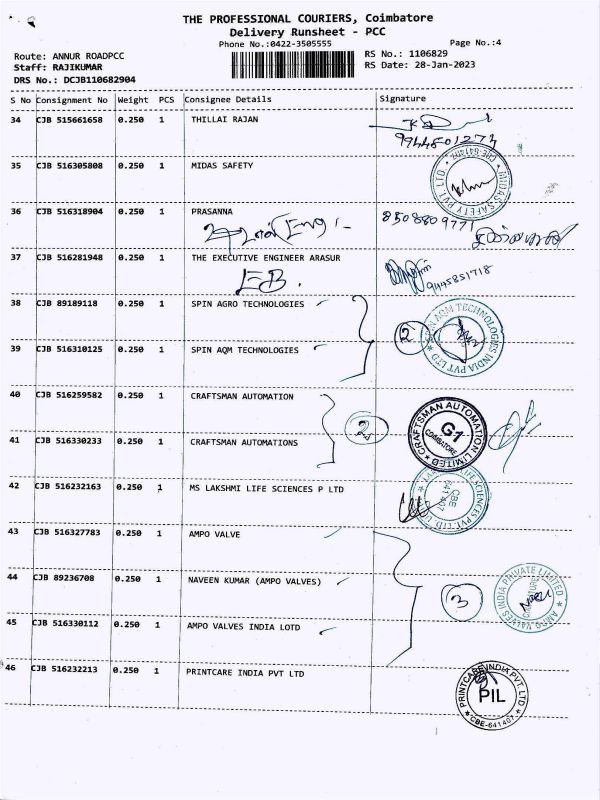 THE PROFESSIONAL COURIERS, Coimbatore
Delivery Runsheet - PCC
Phone No.:0422-3505555
Page No.:4
Route: ANNUR ROADPCC
RS No.: 1106829
Staff: RAJIKUMAR
RS Date: 28-Jan-2023
DRS No.: DCJB110682904
S No Consignment No Weight PCS Consignee Details Signature
34 CJB 515661658 0.250 1 THILLAI RAJAN
9944501274
35 CJB 516305808 0.250 1 MIDAS SAFETY
MIDAS SAFETY PVT. LTD
36 CJB 516318904 0.250 1 PRASANNA
8508809771
37 CJB 516281948 0.250 1 THE EXECUTIVE ENGINEER ARASUR
EB.
9445851718
38 CJB 89189118 0.250 1 SPIN AGRO TECHNOLOGIES
2
SPIN AQM TECHNOLOGIES INDIA PVT LTD
39 CJB 516310125 0.250 1 SPIN AQM TECHNOLOGIES
40 CJB 516259582 0.250 1 CRAFTSMAN AUTOMATION
2
CRAFTSMAN AUTOMATION LIMITED
G1
COIMBATORE
41 CJB 516330233 0.250 1 CRAFTSMAN AUTOMATIONS
42 CJB 516232163 0.250 1 MS LAKSHMI LIFE SCIENCES P LTD
LIFE SCIENCES PVT. LTD.
CBE
641407
43 CJB 516327783 0.250 1 AMPO VALVE
44 CJB 89236708 0.250 1 NAVEEN KUMAR (AMPO VALVES)
3
AMPO VALVES INDIA PRIVATE LIMITED
45 CJB 516330112 0.250 1 AMPO VALVES INDIA LOTD
46 CJB 516232213 0.250 1 PRINTCARE INDIA PVT LTD
PRINTCARE INDIA PVT. LTD
PIL
CBE-641407